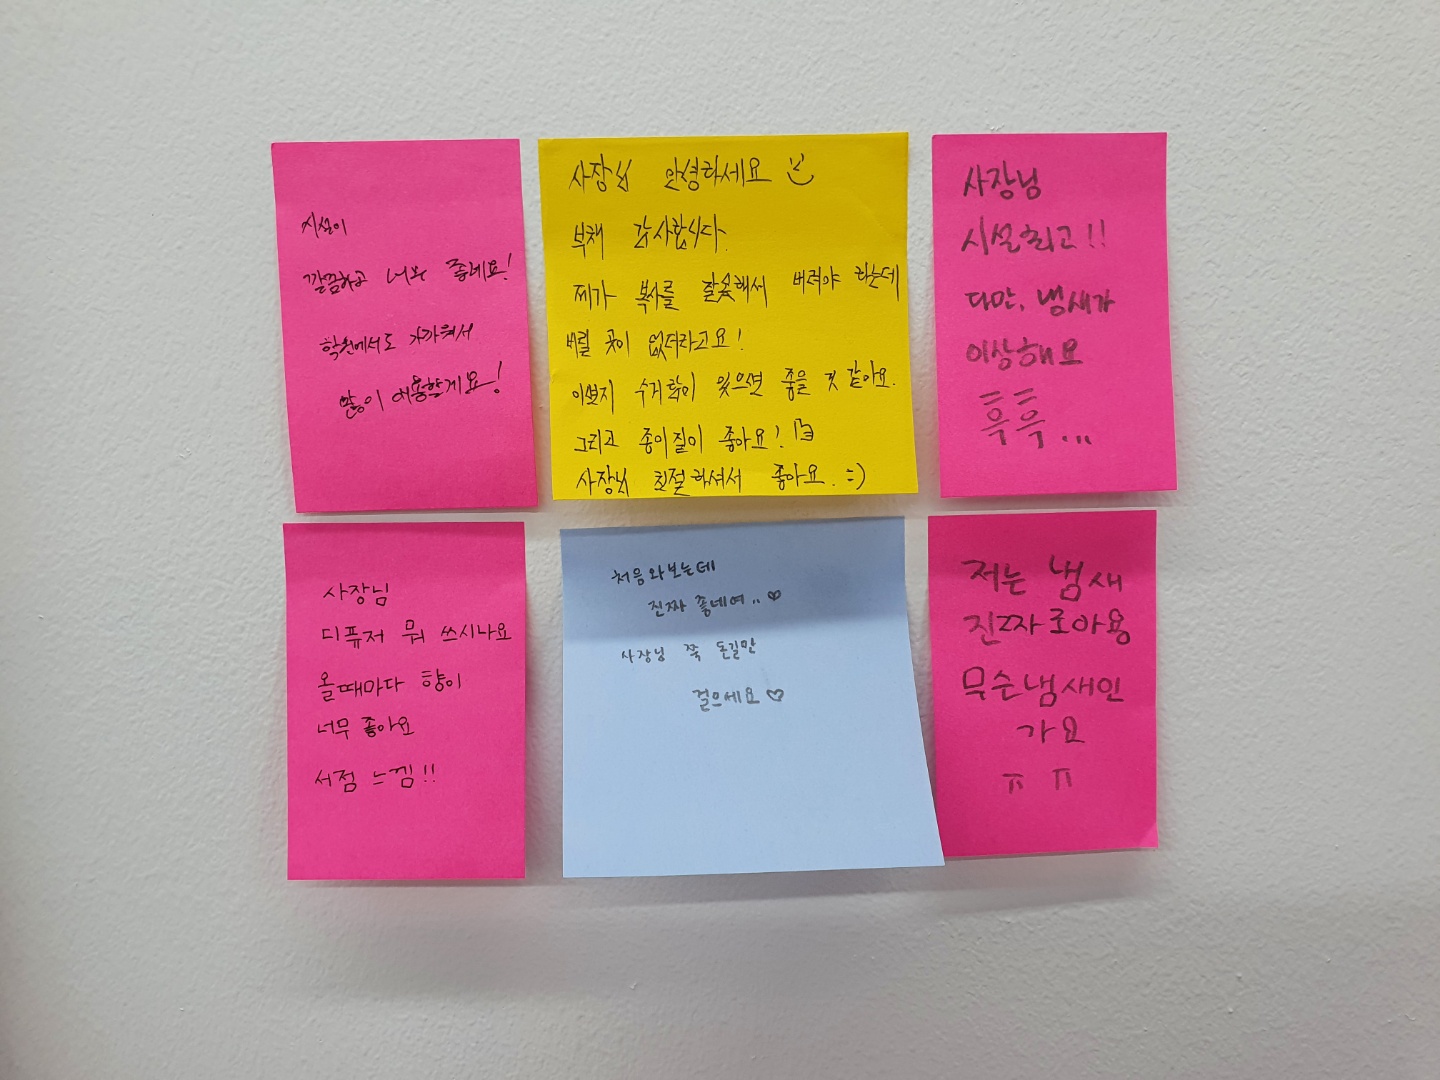 시설이
깔끔하고 너무 좋네요!
학원에서도 가까워서
많이 애용할게요!
사장님 안녕하세요
부채 감사합니다.
제가 복사를 잘못해서 버려야 하는데
버릴 곳이 없더라고요!
이면지 수거함이 있으면 좋을 것 같아요.
그리고 종이질이 좋아요!
사장님 친절하셔서 좋아요. :)
사장님
시설최고!!
다만, 냄새가
이상해요
흑흑...
사장님
디퓨저 뭐 쓰시나요
올때마다 향이
너무 좋아요
서점 느낌!!
처음와보는데
진짜 좋네여..♡
사장님 쭉 돈길만
걸으세요♡
저는 냄새
진짜로아용
무슨냄새인
가요
ㅠㅠ